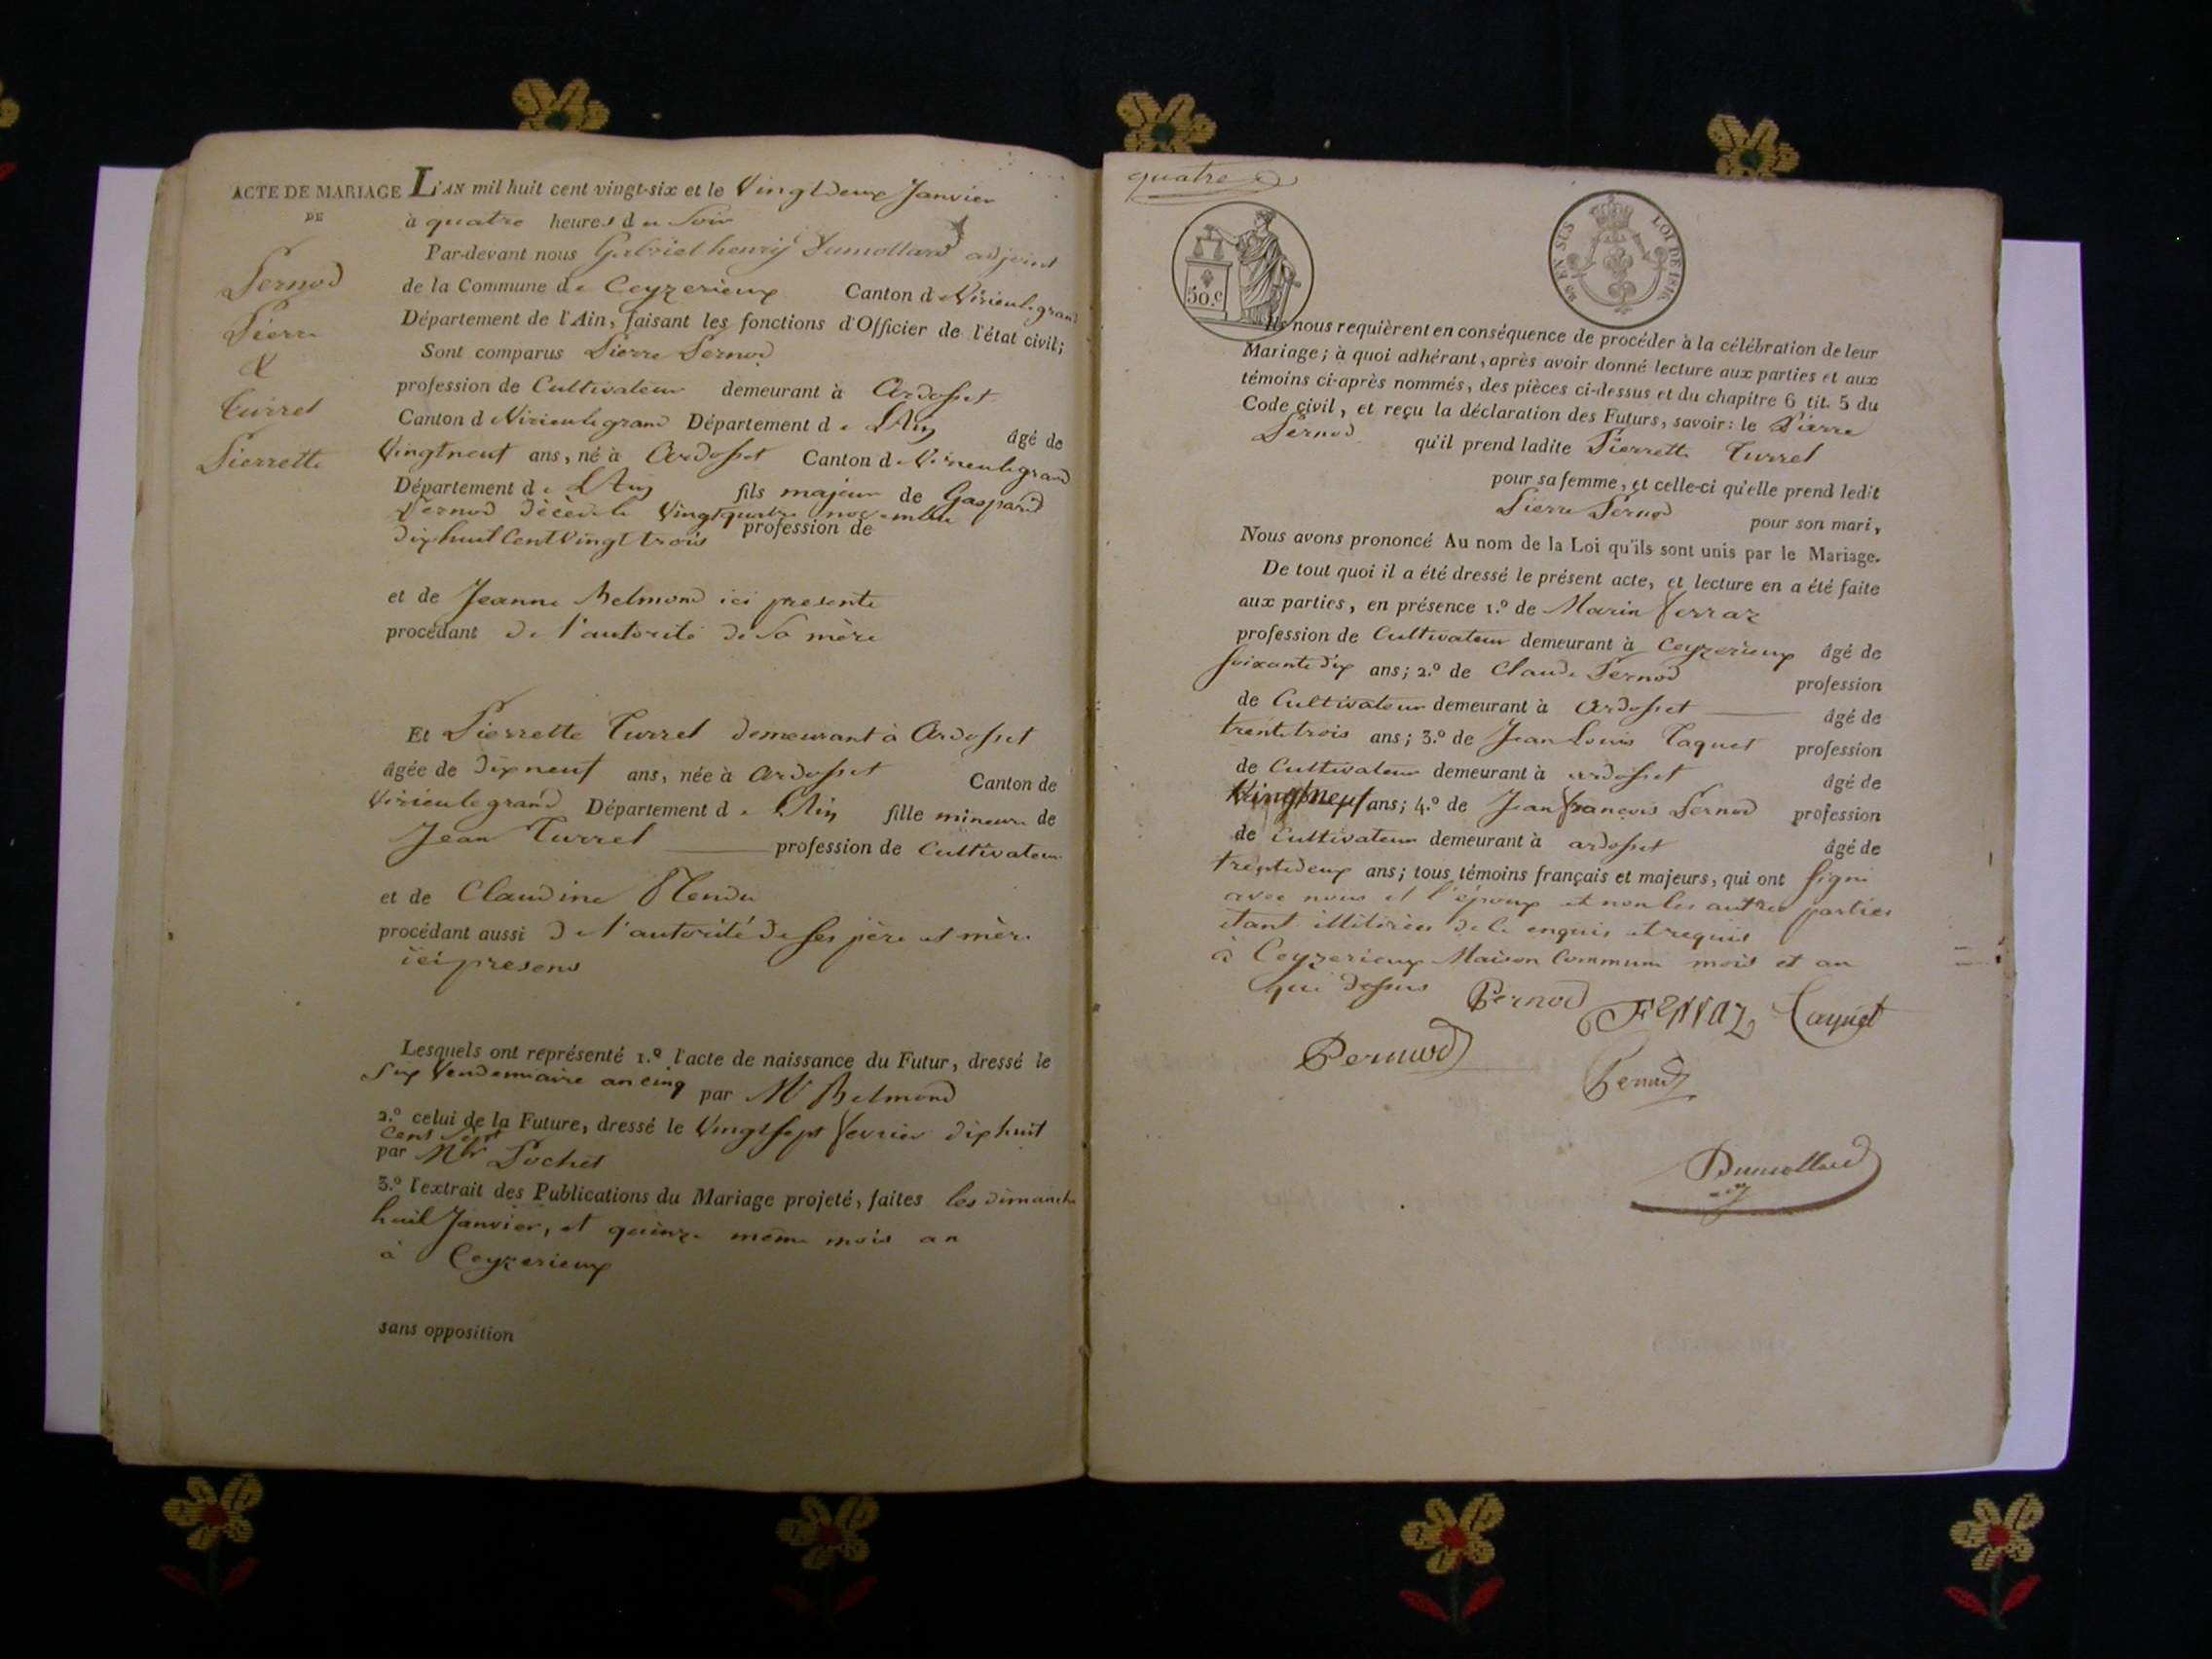 ACTE DE MARIAGE
DE
Pernod
Pierre
&
Turrel
Pierrette
L'AN mil huit cent vingt-six et le Vingtdeux Janvier
à quatre heures du Soir
Par-devant nous Gabriel henry Dumollard adjoint
de la Commune de Ceyzerieux Canton de Virieulegrand
Département de l'Ain, faisant les fonctions d'Officier de l'état civil;
Sont comparus Pierre Pernod
profession de Cultivateur demeurant à Ardosset
Canton de Virieulegrand Département de L'Ain âgé de
Vingtneuf ans, né à Ardosset Canton de Virieulegrand
Département de L'Ain fils majeur de Gaspard
Pernod décédé le Vingtquatre novembre
dixhuit Cent Vingt trois profession de
et de Jeanne Belmond ici presente
procédant de l'autorité de Sa mère
Et Pierrette Turrel demeurant à Ardosset
âgée de dixneuf ans, née à Ardosset Canton de
Virieulegrand Département de L'Ain fille mineure de
Jean Turrel profession de Cultivateur
et de Claudine
procédant aussi de l'autorité de ses père et mère
ici presens
Lesquels ont représenté 1.º l'acte de naissance du Futur, dressé le
Six Vendemiaire an cinq par Mr Belmond
2.º celui de la Future, dressé le Vingtsept fevrier dixhuit
Cent Sept
par Mr Pochet
3.º l'extrait des Publications du Mariage projeté, faites les dimanche
huit Janvier, et quinze même mois an
à Ceyzerieux
sans opposition
quatre
50.c
EN SUS
LOI DE 1816
Ils nous requièrent en conséquence de procéder à la célébration de leur
Mariage; à quoi adhérant, après avoir donné lecture aux parties et aux
témoins ci-après nommés, des pièces ci-dessus et du chapitre 6 tit. 5 du
Code civil, et reçu la déclaration des Futurs, savoir: le Pierre
Pernod qu'il prend ladite Pierrette Turrel
pour sa femme, et celle-ci qu'elle prend ledit
Pierre Pernod pour son mari,
Nous avons prononcé Au nom de la Loi qu'ils sont unis par le Mariage.
De tout quoi il a été dressé le présent acte, et lecture en a été faite
aux parties, en présence 1.º de Marin ferraz
profession de Cultivateur demeurant à Ceyzerieux âgé de
soixante dix ans; 2.º de Claude Pernod profession
de Cultivateur demeurant à Ardosset âgé de
trente trois ans; 3.º de Jean Louis Taquet profession
de Cultivateur demeurant à ardosset âgé de
Vingtneuf ans; 4.º de Jean françois Pernod profession
de Cultivateur demeurant à ardosset âgé de
trentedeux ans; tous témoins français et majeurs, qui ont signé
avec nous et l'époux et non les autres parties
etant illitérées de ce enquis et requis
à Ceyzerieux Maison Commune mois et an
que dessus Pernod FERRAZ Taquet
Pernod
Pernod
Dumollard